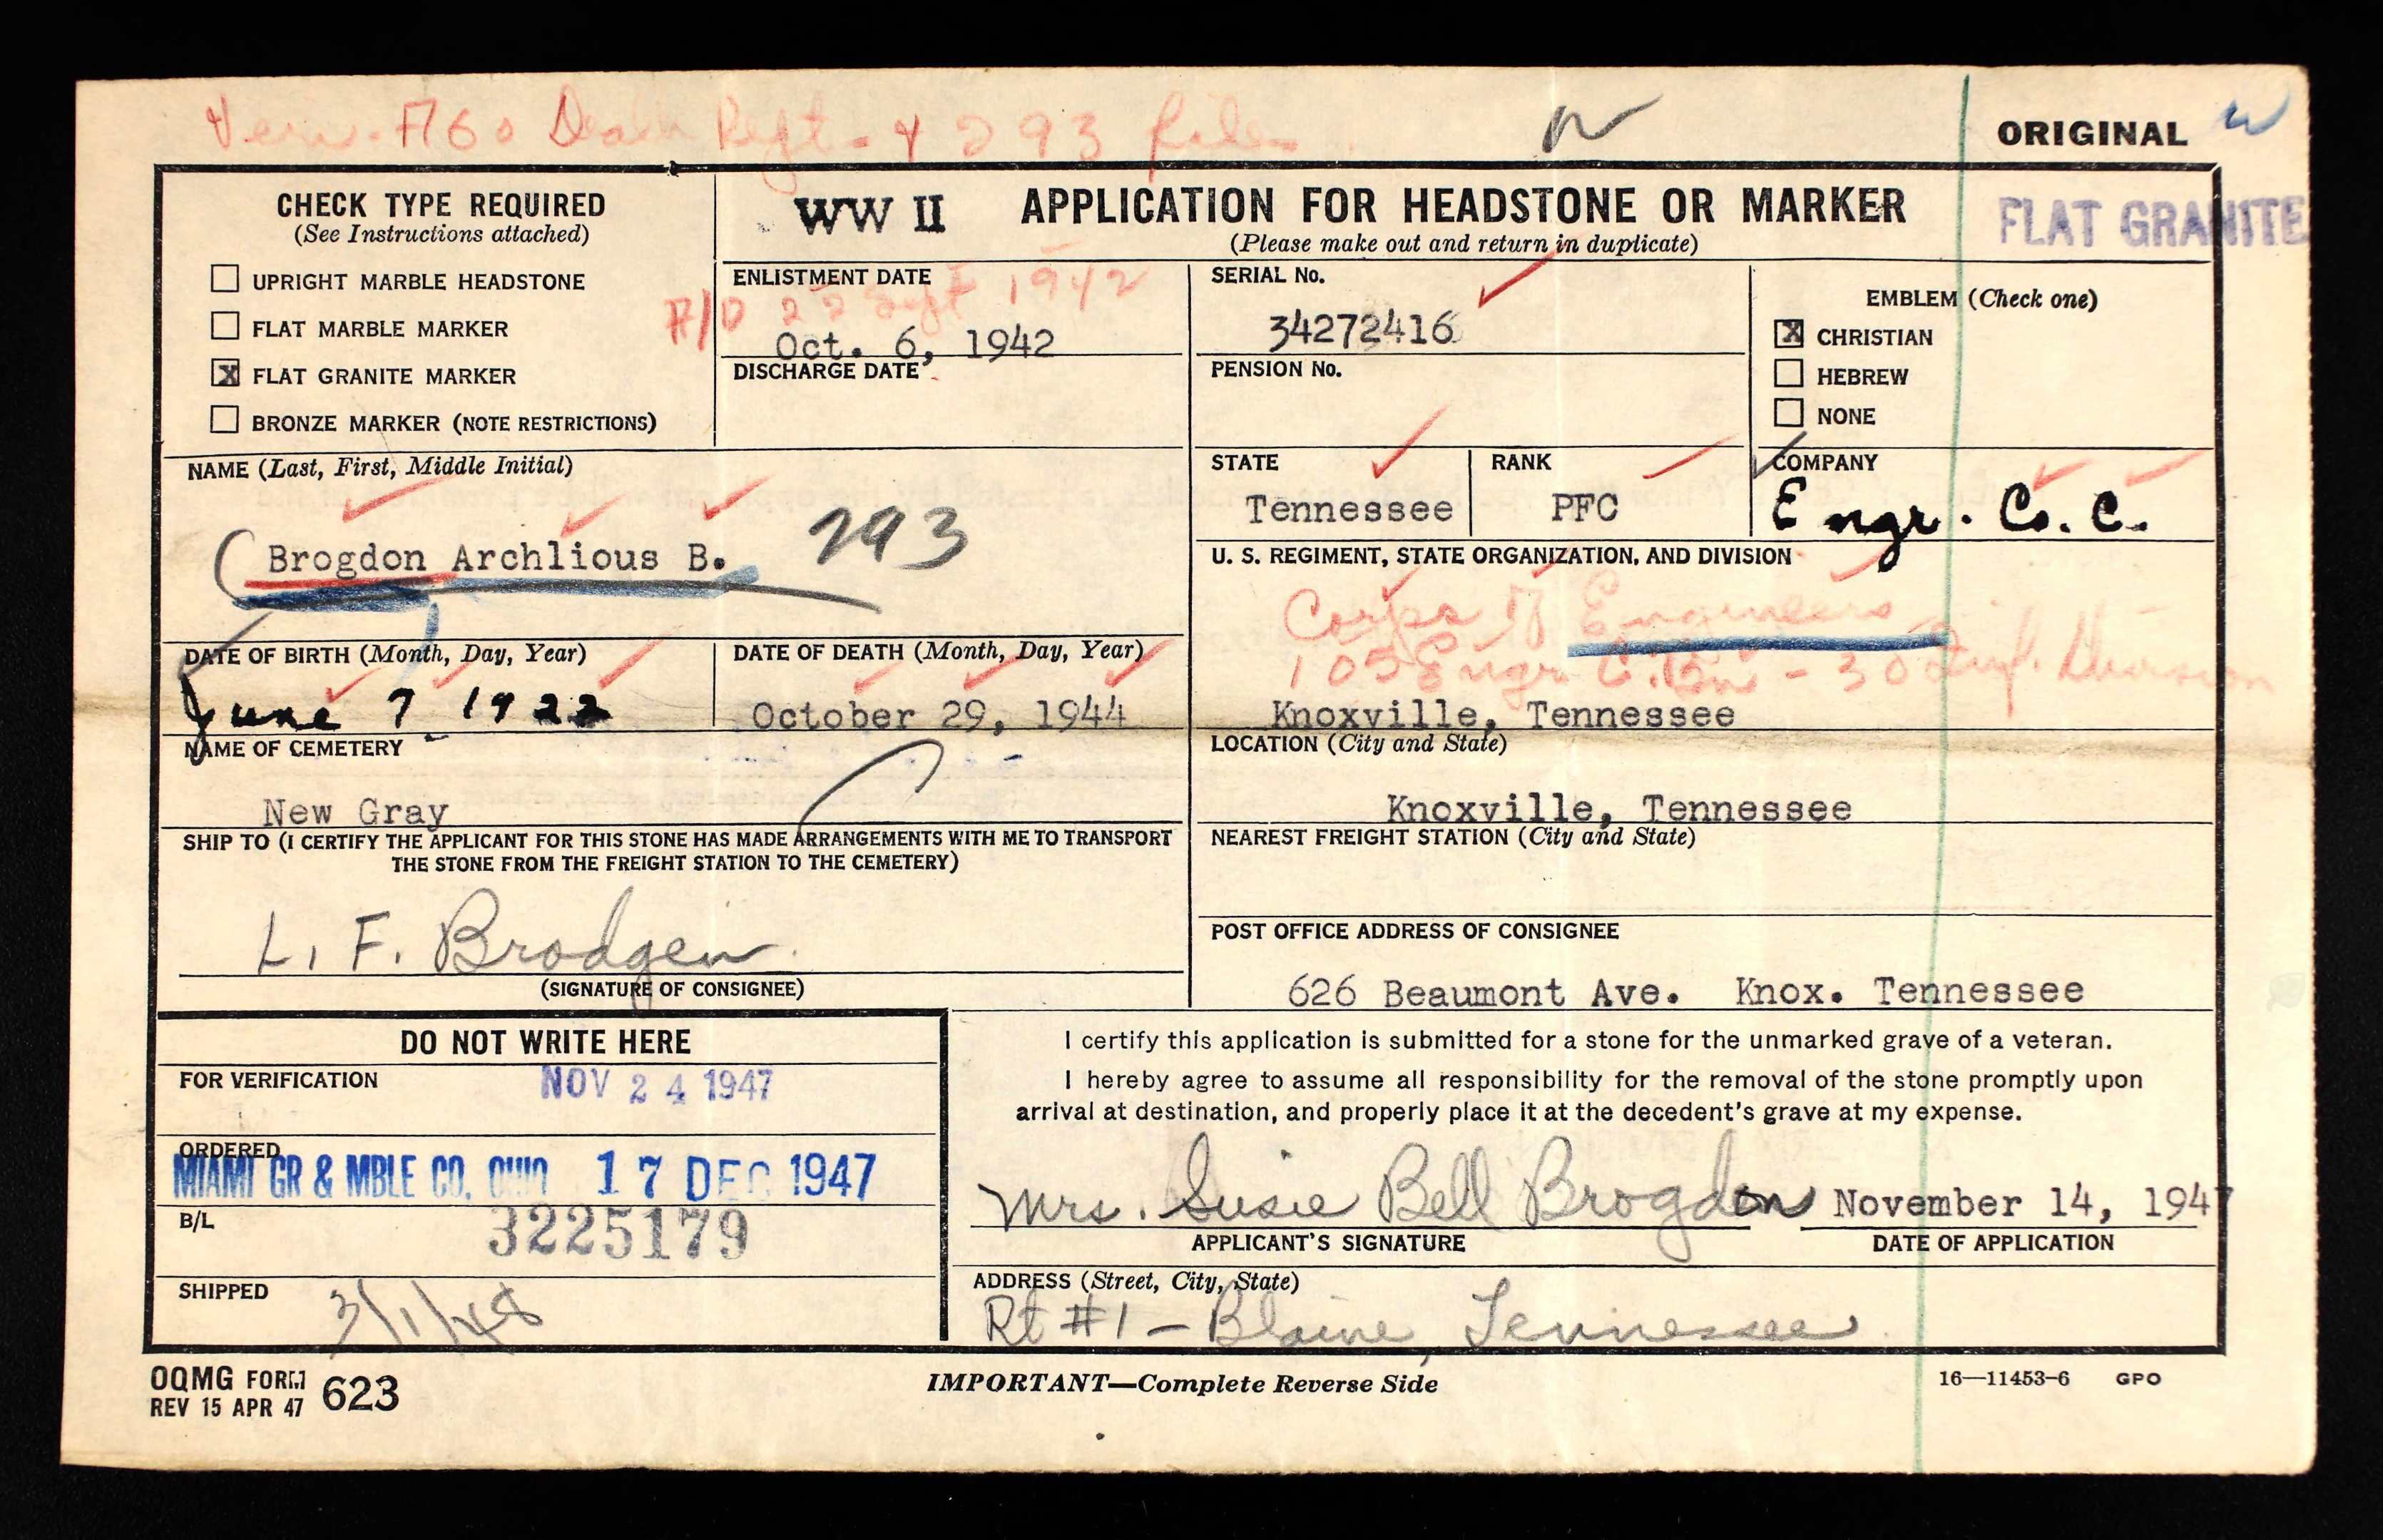 Veri. AGO Death Rept. - & 293 file
ORIGINAL W
CHECK TYPE REQUIRED
(See Instructions attached)
UPRIGHT MARBLE HEADSTONE
FLAT MARBLE MARKER
X FLAT GRANITE MARKER
BRONZE MARKER (NOTE RESTRICTIONS)
WW II APPLICATION FOR HEADSTONE OR MARKER
(Please make out and return in duplicate)
FLAT GRANITE
ENLISTMENT DATE
22 Sept 1942
Oct. 6, 1942
DISCHARGE DATE
SERIAL No.
34272416
PENSION No.
EMBLEM (Check one)
X CHRISTIAN
HEBREW
NONE
NAME (Last, First, Middle Initial)
Brogdon Archlious B. 293
STATE
Tennessee
RANK
PFC
COMPANY
Engr. Co. C.
U. S. REGIMENT, STATE ORGANIZATION, AND DIVISION
Corps of Engineers
105 Engr C. Bn - 30 Inf. Division
Knoxville, Tennessee
DATE OF BIRTH (Month, Day, Year)
June 7 1922
DATE OF DEATH (Month, Day, Year)
October 29, 1944
NAME OF CEMETERY
New Gray
LOCATION (City and State)
Knoxville, Tennessee
SHIP TO (I CERTIFY THE APPLICANT FOR THIS STONE HAS MADE ARRANGEMENTS WITH ME TO TRANSPORT
THE STONE FROM THE FREIGHT STATION TO THE CEMETERY)
L. F. Brodgen
(SIGNATURE OF CONSIGNEE)
NEAREST FREIGHT STATION (City and State)
POST OFFICE ADDRESS OF CONSIGNEE
626 Beaumont Ave. Knox. Tennessee
DO NOT WRITE HERE
FOR VERIFICATION
NOV 24 1947
ORDERED
MIAMI GR & MBLE CO. OHIO 17 DEC 1947
B/L
3225179
SHIPPED
3/1/48
I certify this application is submitted for a stone for the unmarked grave of a veteran.
I hereby agree to assume all responsibility for the removal of the stone promptly upon
arrival at destination, and properly place it at the decedent's grave at my expense.
Mrs. Susie Bell Brogdon November 14, 1947
APPLICANT'S SIGNATURE DATE OF APPLICATION
ADDRESS (Street, City, State)
Rt #1 - Blaine, Tennessee
OQMG FORM 623
REV 15 APR 47
IMPORTANT—Complete Reverse Side
16—11453-6 GPO